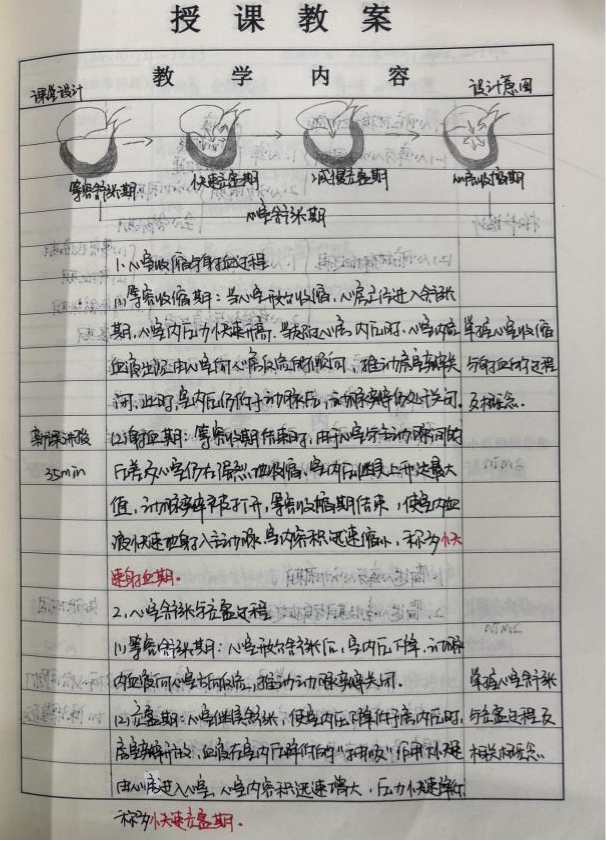 授课教案
课堂设计 教学内容 设计意图
等容舒张期 快速充盈期 减慢充盈期 心房收缩期
心室舒张期
1.心室收缩与射血过程
(1)等容收缩期:当心室开始收缩,心房立马进入舒张
期,心室内压力快速升高,当超过心房内压时,心室内
血液出现由心室向心房反向的倾向,推动房室瓣关
闭,此时,室内压仍低于动脉压,动脉瓣仍处于关闭.
掌握心室收缩
与射血的过程
及概念.
新课讲授
35min
(2)射血期:等容收缩期结束时,由于心室与主动脉间的
压差,心室仍在强烈地收缩,室内压继续上升达最大
值,动脉瓣被打开,等容收缩期结束,使室内血
液快速地射入主动脉,室内容积迅速缩小,称为快
速射血期.
2.心室舒张与充盈过程
(1)等容舒张期:心室开始舒张后,室内压下降,动脉
内血液向心室方向反流,推动动脉瓣关闭.
(2)充盈期:心室继续舒张,使室内压下降低于房内压时,
房室瓣开放,血液在室内压降低的“抽吸”作用下快速
由心房进入心室,心室内容积迅速增大,压力快速降低
称为快速充盈期.
掌握心室舒张
与充盈过程及
相关概念.